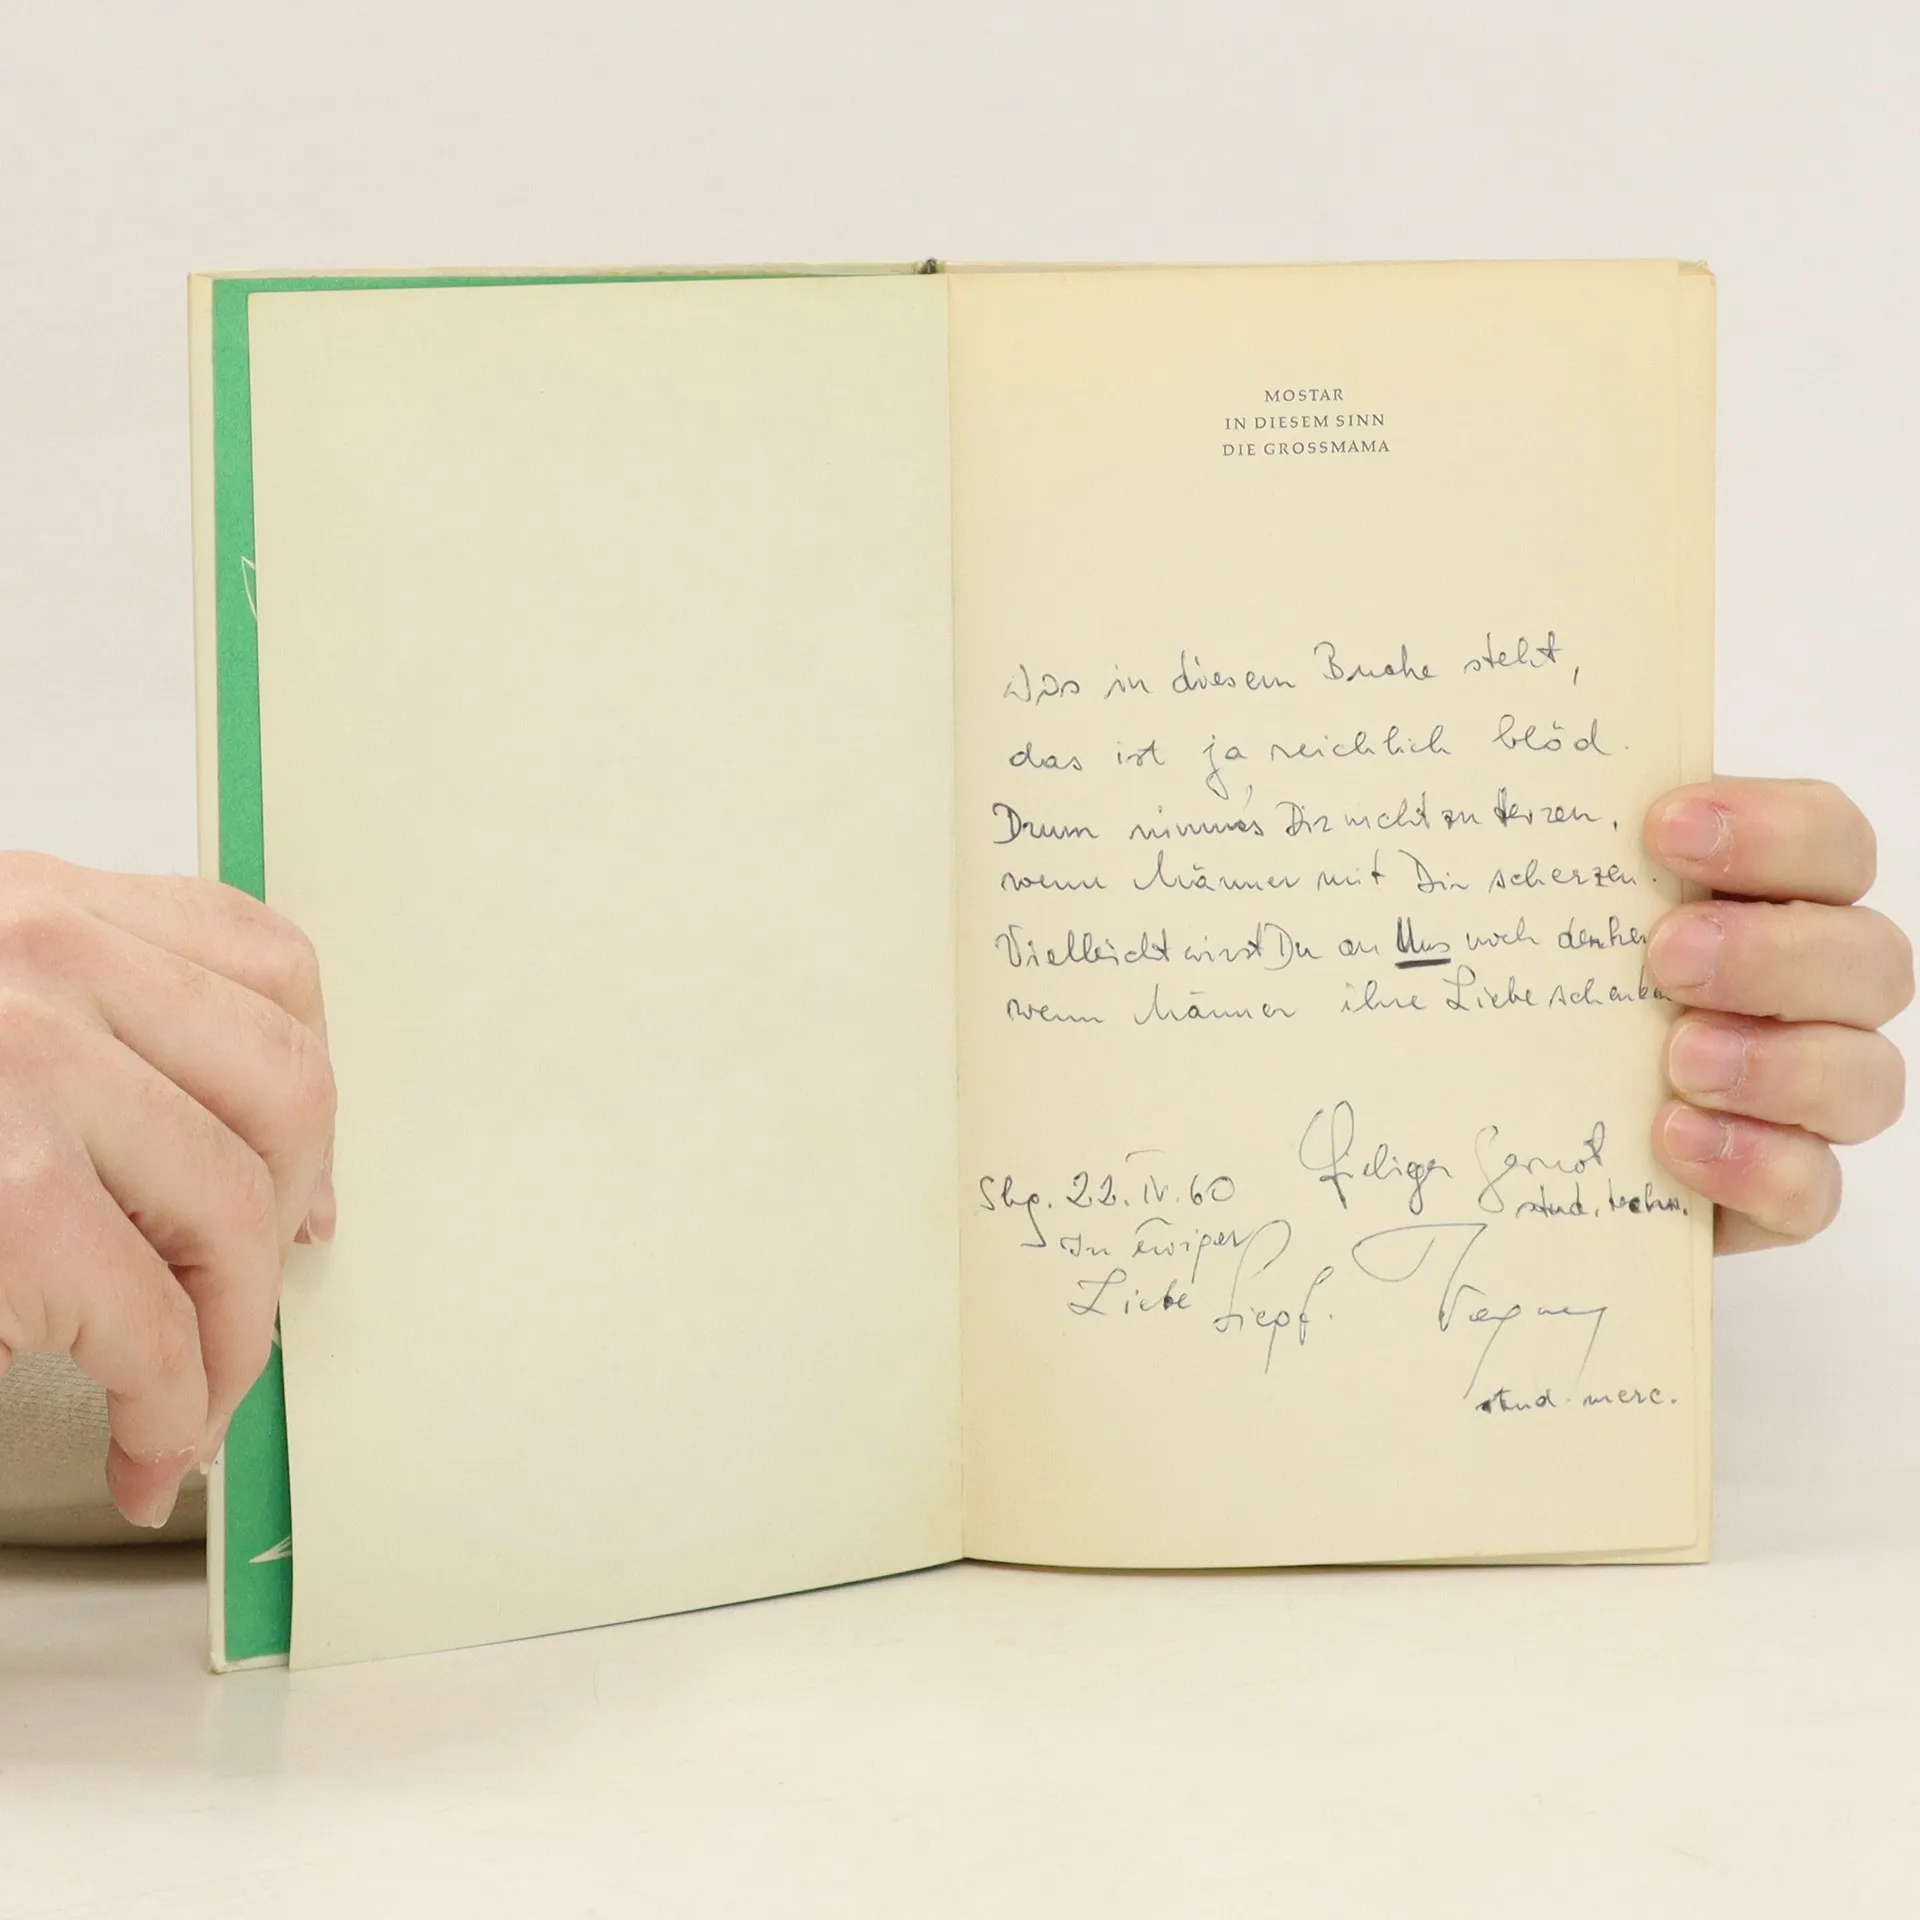 MOSTAR
IN DIESEM SINN
DIE GROSSMAMA
Was in diesem Buche steht,
das ist ja reichlich blöd.
Drum nimm's Dir nicht zu Herzen,
wenn Männer mit Dir scherzen.
Vielleicht wirst Du an Uns noch denken
wenn Männer ihre Liebe schenken
Gernot
Sbg. 22. IV. 60
stud. techn.
In Ewiger
Liebe
stud. merc.